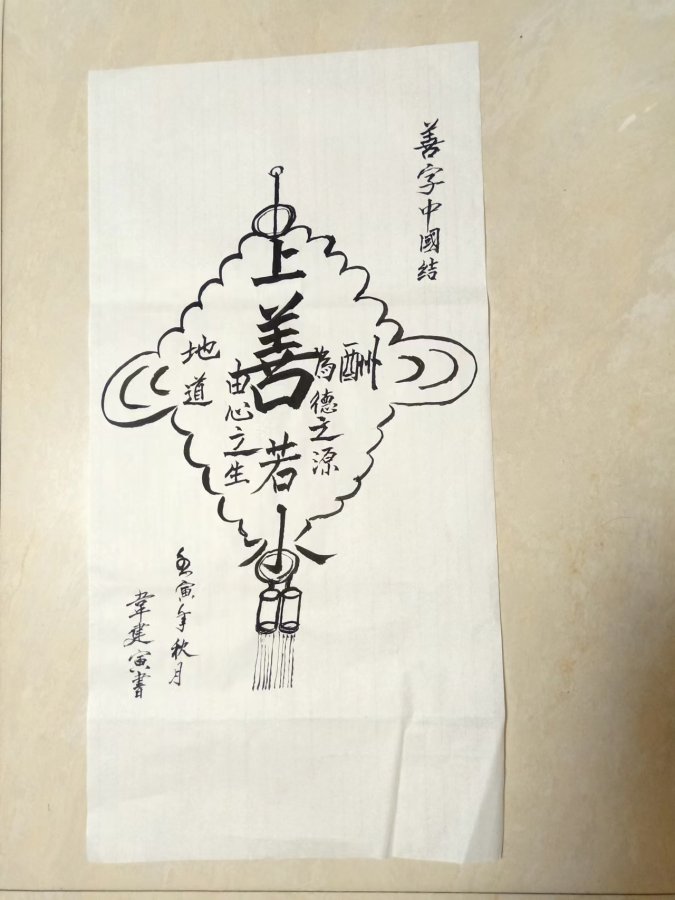 善字中國结
上善若水
酬
為德之源
由心之生
地道
壬寅年秋月
韋建寅書